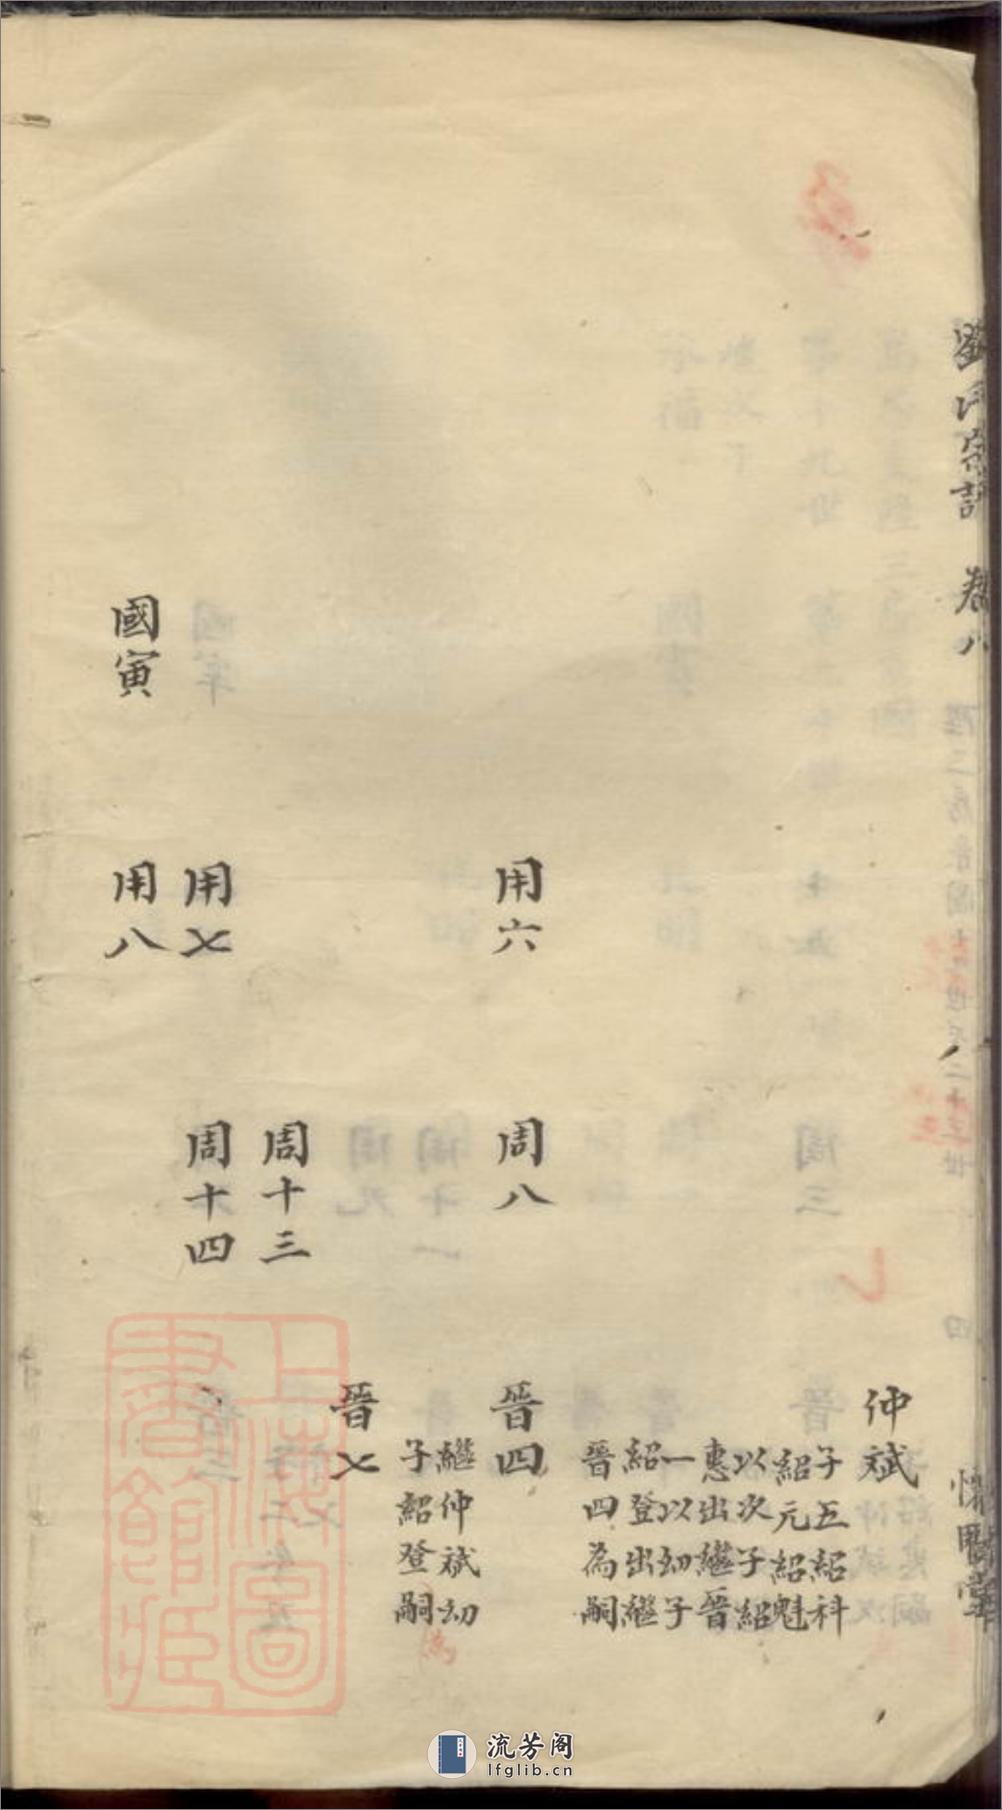 劉氏宗譜 卷八
仲斌
子五紹科
紹元紹魁
以次子紹
惠出繼晉
一以幼子
紹登出繼
晉四為嗣
用六
周八
晉四
繼仲斌幼
子紹登嗣
為
晉七
周十三
用七
周十四
國寅
用八
上海圖書館藏
流芳阁
lfglib.cn